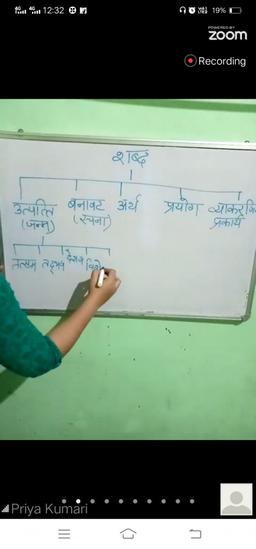 4G 4G 12:32 19%
POWERED BY
zoom
Recording
शब्द
उत्पत्ति बनावट अर्थ प्रयोग
(जन्म) (रचना) प्रकार्य
तत्सम तद्भव देशज
Priya Kumari